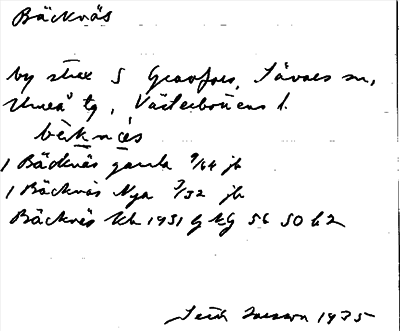 Bäcknäs
by strax S Gravfors, Sävars sn,
Umeå tg, Västerbottens l.
bèknä̀s
1 Bäcknäs gamla 9/64 jb
1 Bäcknäs Nya 7/32 jb
Bäcknäs kh 1951 G kg 56 50 b 2
1975